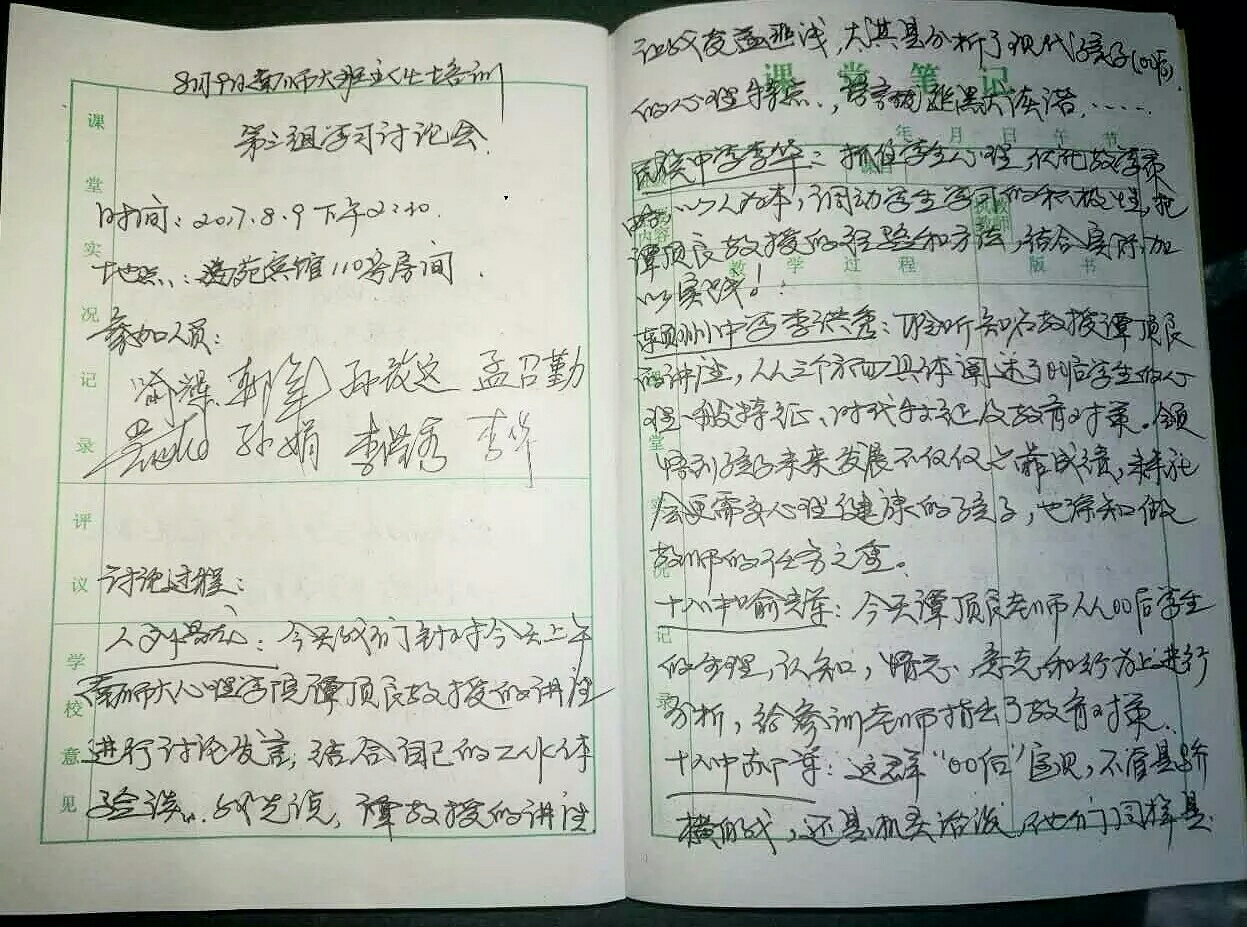 8月9日南师大班主任培训
第三组学习讨论会
时间：2017.8.9下午2:30
地点：苑宾馆110号房间
参加人员：
孟召勤
孙娟 李洪秀 李华
讨论过程：
：今天我们针对今天上午
南师大心理学院谭顶良教授的讲座
进行讨论发言，结合自己的工作体
验谈。我先说，谭教授的讲座
课堂实况记录
评议
学校意见
课堂笔记
年 月 日 午 节
让我受益匪浅，尤其是分析了现代孩子(00后)
的心理特点，语言诙谐……
民族中学李华：抓住学生心理，优化教学
，以人为本，调动学生学习的积极性，把
谭顶良教授的经验和方法，结合实际加
以实践！
教学过程 版书
中学李洪秀：聆听知名教授谭顶良
的讲座，从三个方面具体阐述了00后学生的心
理一般特征、时代特征及教育对策。领
悟到孩子未来发展不仅仅靠成绩，未来社
会更需要心理健康的孩子，也深知做
教师的任务之重。
十八中喻：今天谭顶良老师从00后学生
的生理，认知，情感、意志和行为上进行
分析，给参训老师指出了教育对策。
十八中：这群“00后”，不管是骄
横的我，还是，他们同样是